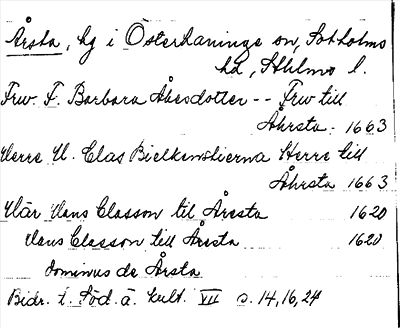 Årsta, hg i Österhaninge sn, Sotholms
hd, Sthlms l.
Frw. F. Barbara Åkesdotter -- Frw till
Åhrsta. 1663
Herre H. Clas Bielkenstierna Herre till
Åhrsta 1663
Här Hans Classon til Åresta 1620
Hans Classon till Åresta 1620
dominus de Årsta
Bidr. t. Söd. ä. kult. VII s. 14, 16, 24